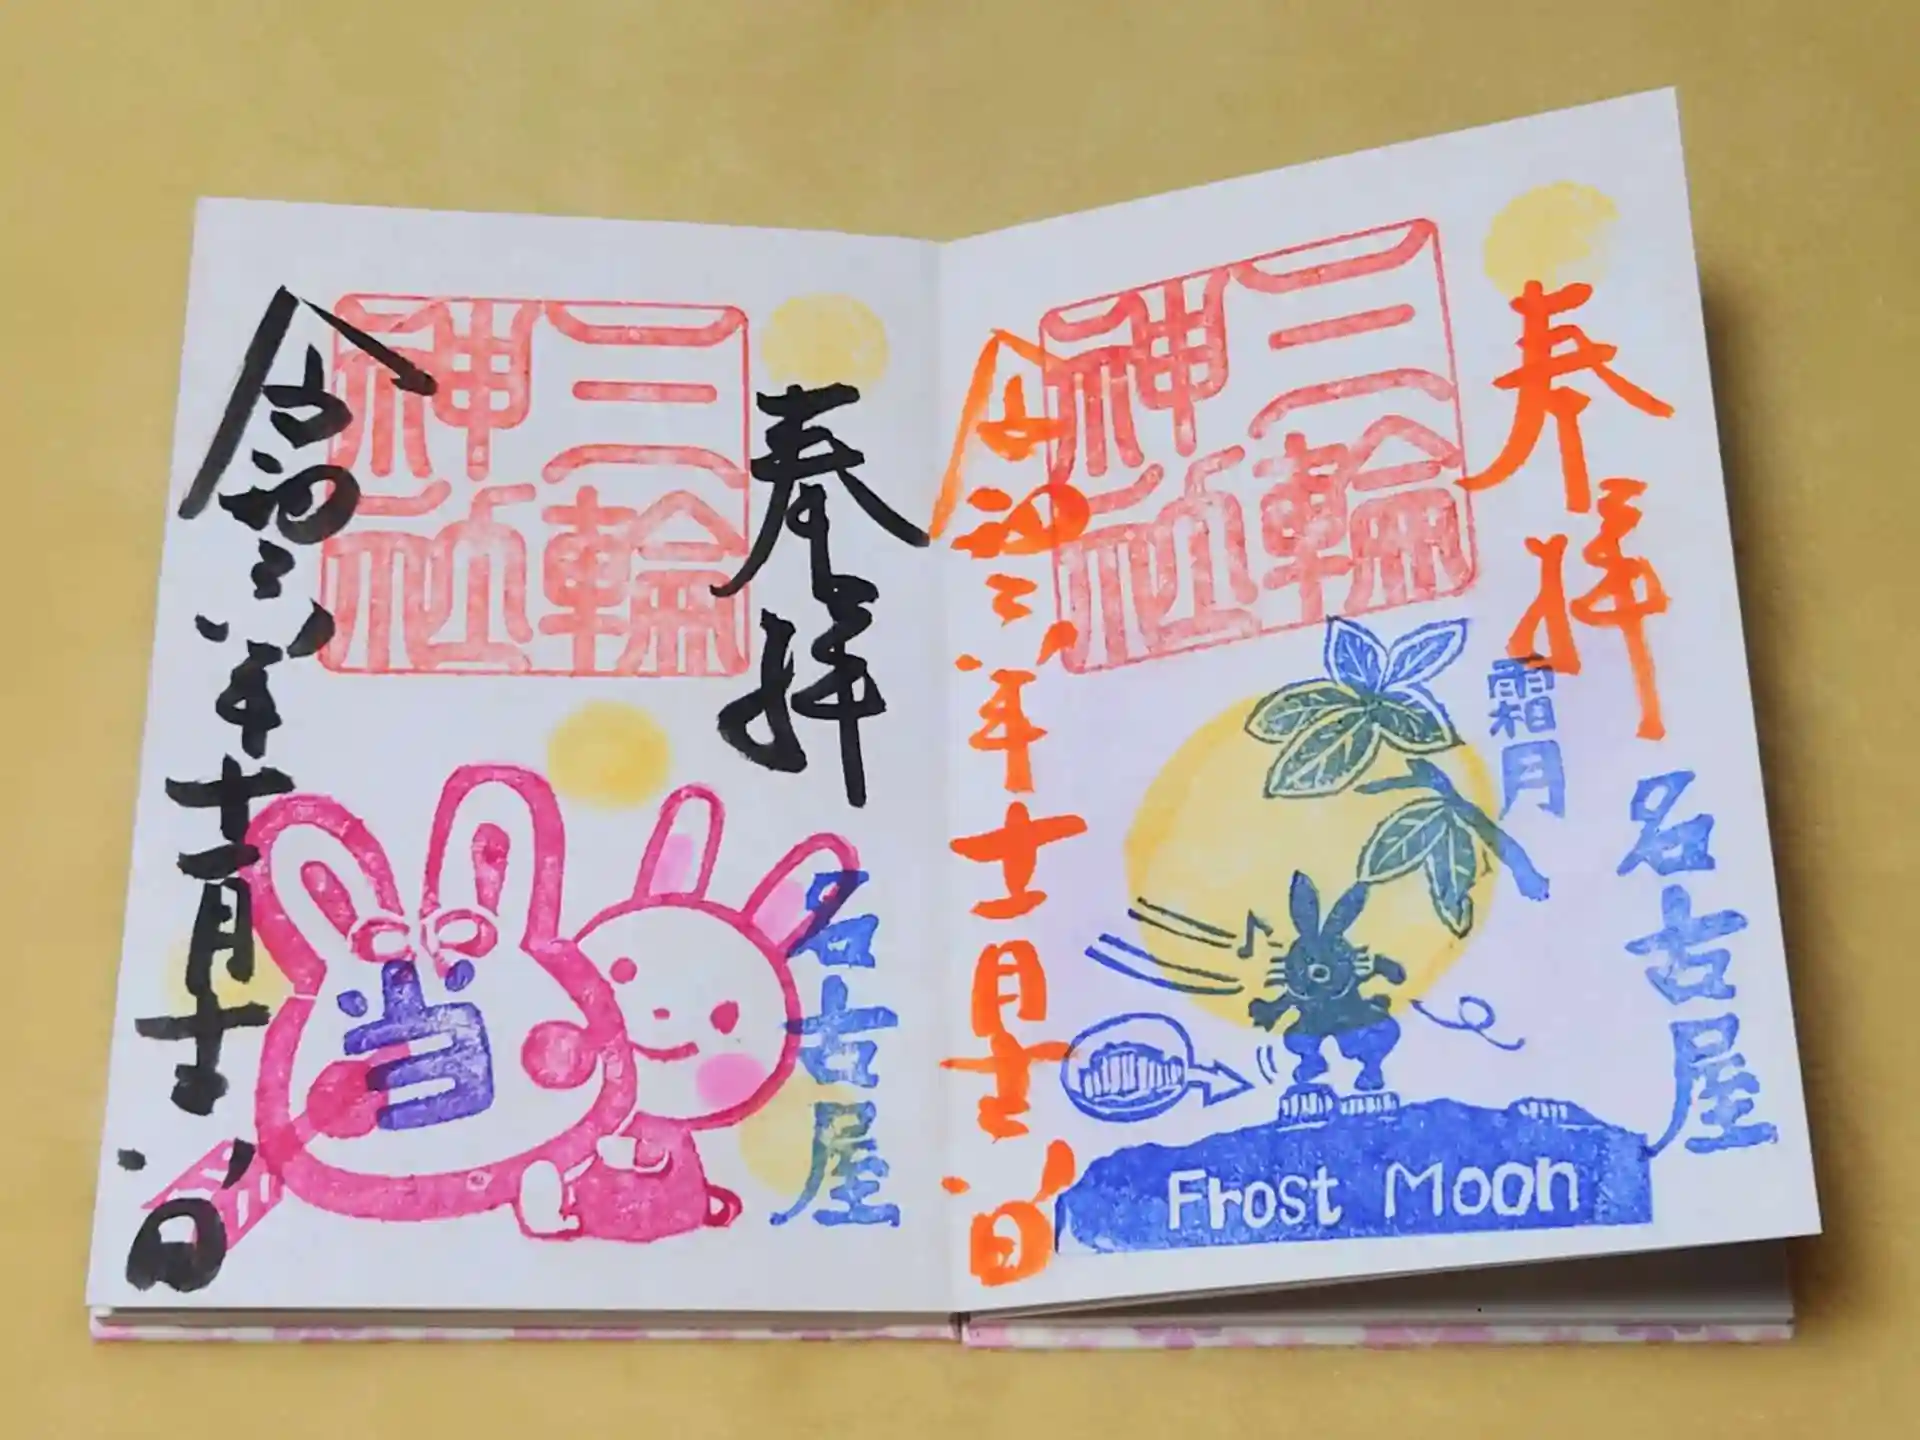 奉拝
三輪
神社
名古屋
当
令和六年十一月十六日
奉拝
三輪
神社
霜月
名古屋
Frost Moon
令和六年十一月十六日